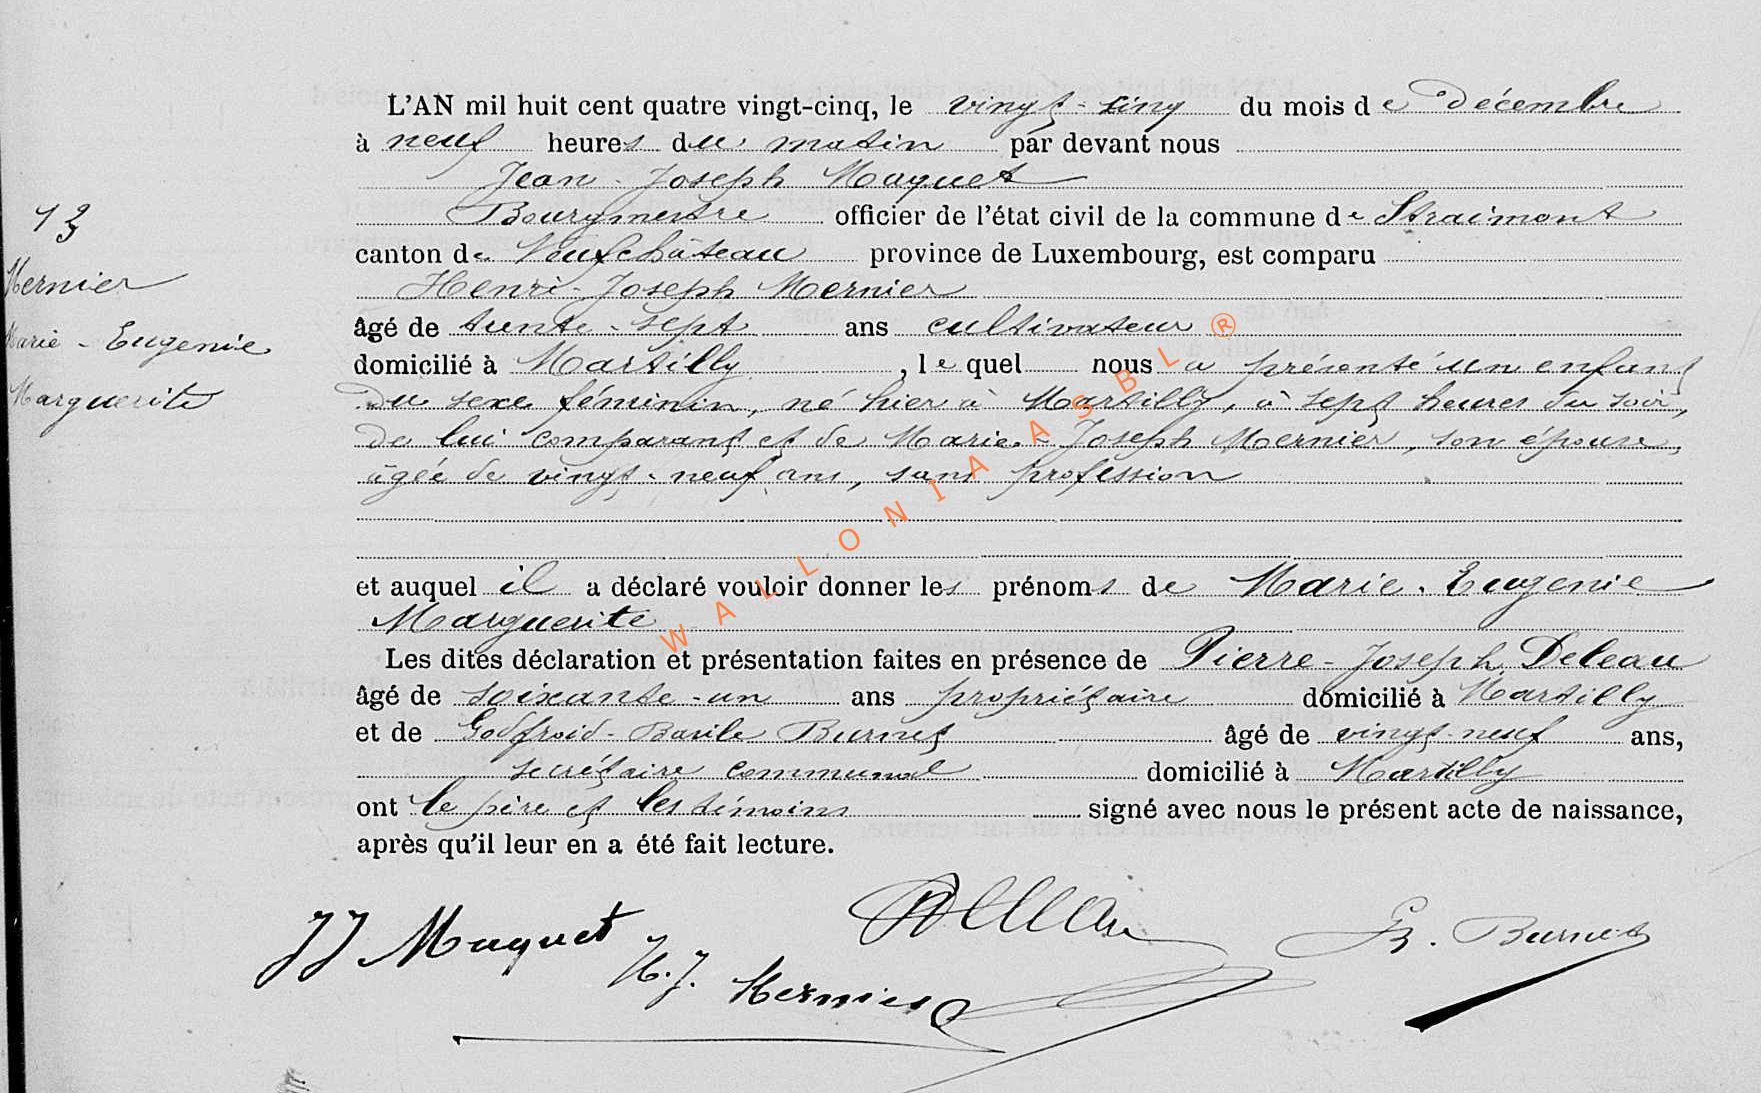 L'AN mil huit cent quatre vingt-cinq, le vingt-cinq du mois de Décembre
à neuf heures du matin par devant nous
Jean-Joseph Maquet
Bourgmestre officier de l'état civil de la commune de Straimont
canton de Neufchâteau province de Luxembourg, est comparu
Henri-Joseph Mernier
âgé de trente-sept ans cultivateur
domicilié à Martilly, lequel nous a présenté un enfant
du sexe féminin, né hier à Martilly, à sept heures du soir,
de lui comparant et de Marie-Joseph Mernier, son épouse,
âgée de vingt-neuf ans, sans profession
et auquel il a déclaré vouloir donner les prénoms de Marie-Eugenie
Marguerite
Les dites déclaration et présentation faites en présence de Pierre-Joseph Deleau
âgé de soixante-un ans propriétaire domicilié à Martilly
et de Godfroid-Basile Burnet âgé de vingt-neuf ans,
secrétaire communal domicilié à Martilly
ont le père et les témoins signé avec nous le présent acte de naissance,
après qu'il leur en a été fait lecture.
13
Mernier
Marie-Eugenie
Marguerite
JJ Maquet
H.J. Mernier
B. Burnet
WALLONIA ASBL ®